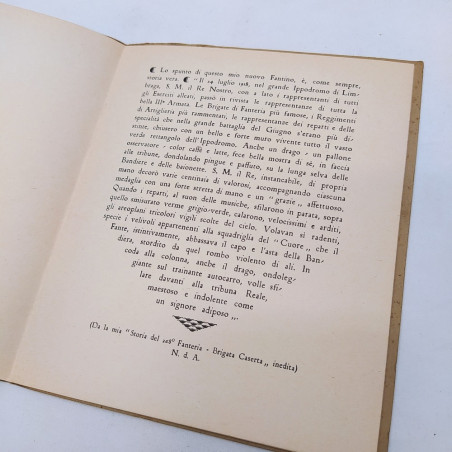 Lo spunto di questo mio nuovo Fantino, è, come sempre,
storia vera. " Il 14 luglio 1918, nel grande Ippodromo di Lim-
braga, S. M. il Re Nostro, con a lato i rappresentanti di tutti
gli Eserciti alleati, passò in rivista le rappresentanze di tutta la
bella IIIª Armata. Le Brigate di Fanteria più famose, i Reggimenti
di Artiglieria più rammentati, le rappresentanze dei reparti e delle
specialità che nella grande battaglia del Giugno s'erano più di-
stinte, chiusero con un bello e forte muro vivente tutto il vasto
verde rettangolo dell'Ippodromo. Anche un drago - un pallone
osservatore - color caffè e latte, fece bella mostra di sè, in faccia
alle tribune, dondolando pingue e paffuto, su la lunga selva delle
Bandiere e delle baionette. S. M. il Re, instancabile, di propria
mano decorò varie centinaia di valorosi, accompagnando ciascuna
medaglia con una forte stretta di mano e un " grazie „ affettuoso.
Quando i reparti, al suon delle musiche, sfilarono in parata, sopra
quello smisurato verme grigio-verde, calarono, velocissimi e arditi,
gli aeroplani tricolori vigili scolte del cielo. Volavan sì radenti,
specie i velivoli appartenenti alla squadriglia del " Cuore „ che il
Fante, istintivamente, abbassava il capo e l'asta della Ban-
diera, stordito da quel rombo violento di ali. In
coda alla colonna, anche il drago, ondoleg-
giante sul trainante autocarro, volle sfi-
lare davanti alla tribuna Reale,
maestoso e indolente come
un signore adiposo „.
(Da la mia " Storia del 268º Fanteria - Brigata Caserta „ inedita)
N. d. A.